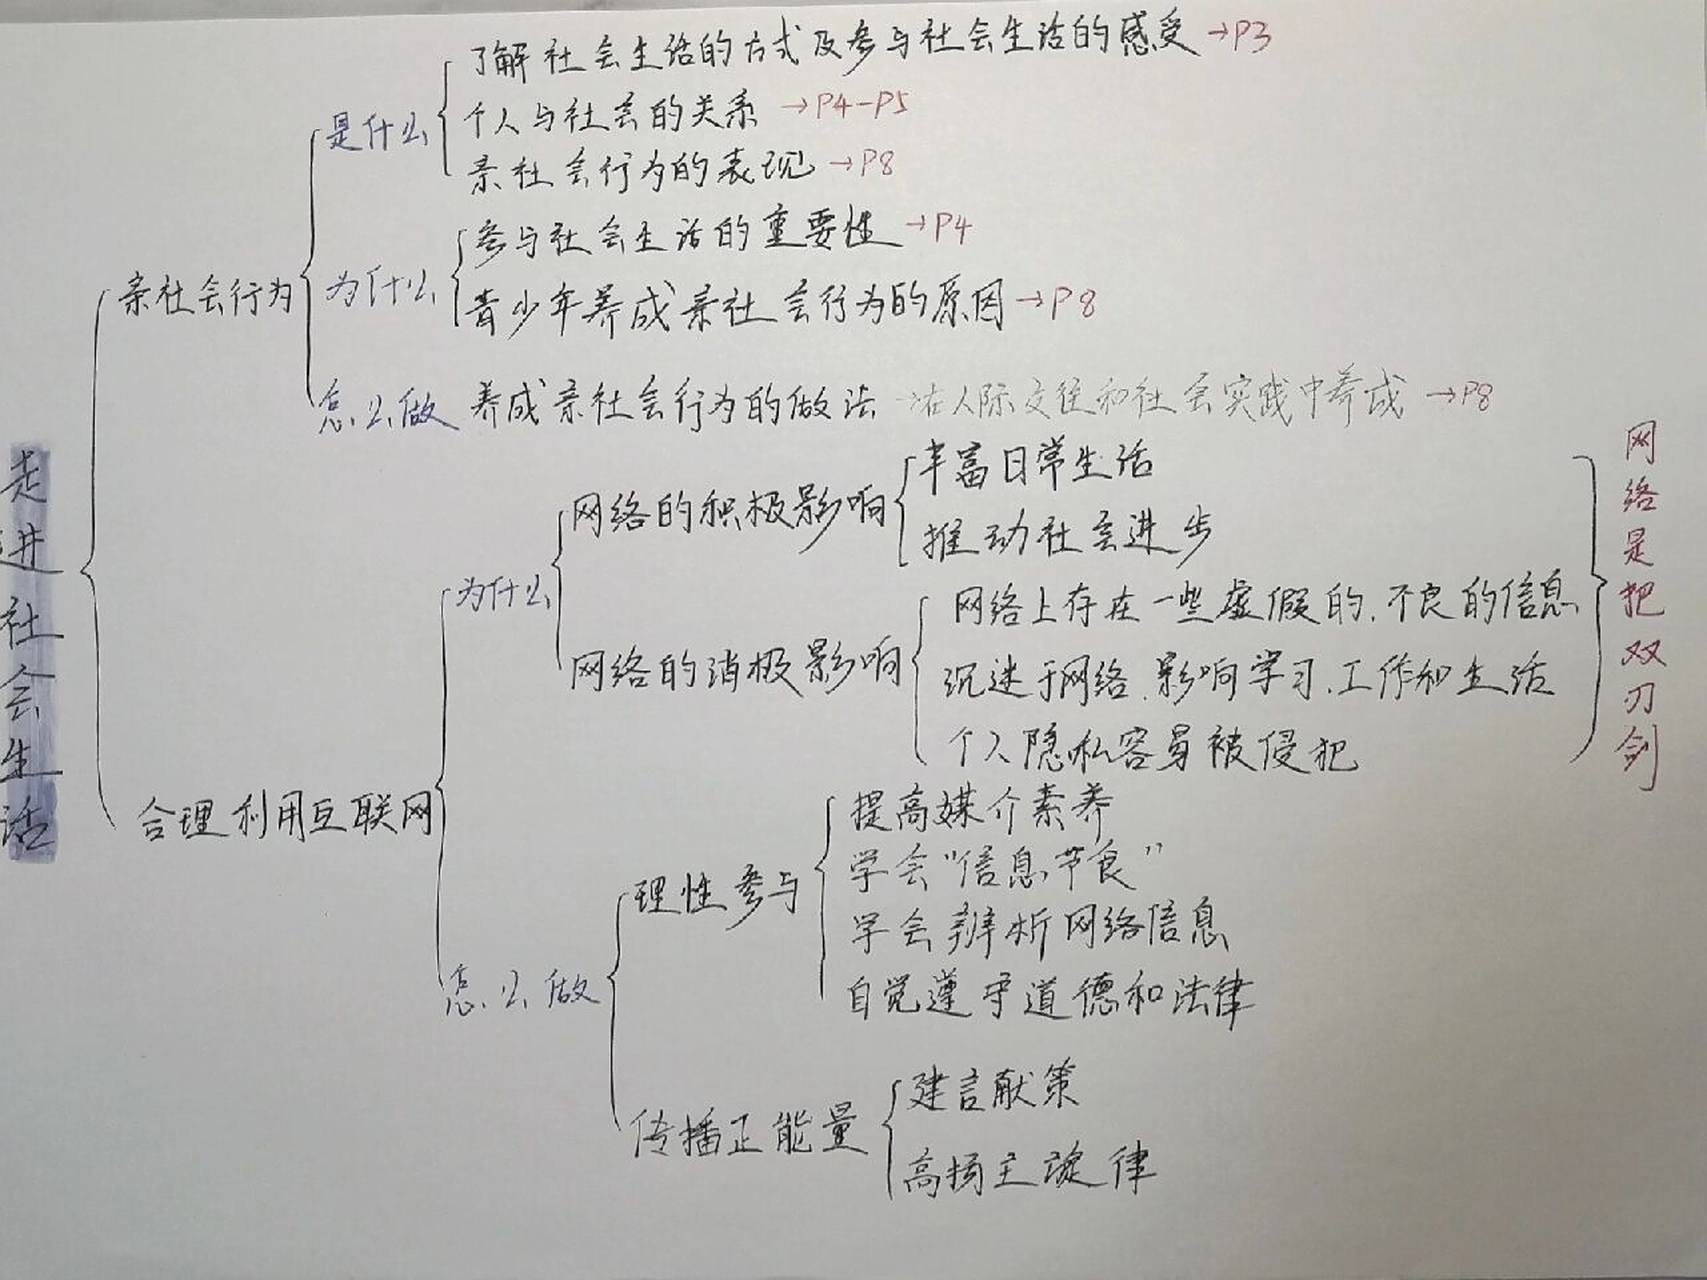 走进社会生活
亲社会行为
是什么
了解社会生活的方式及参与社会生活的感受→P3
个人与社会的关系→P4-P5
亲社会行为的表现→P8
为什么
参与社会生活的重要性→P4
青少年养成亲社会行为的原因→P8
怎么做 养成亲社会行为的做法→在人际交往和社会实践中养成→P8
合理利用互联网
为什么
网络的积极影响
丰富日常生活
推动社会进步
网络的消极影响
网络上存在一些虚假的、不良的信息
沉迷于网络,影响学习、工作和生活
个人隐私容易被侵犯
网络是把双刃剑
怎么做
理性参与
提高媒介素养
学会“信息节食”
学会辨析网络信息
自觉遵守道德和法律
传播正能量
建言献策
高扬主旋律